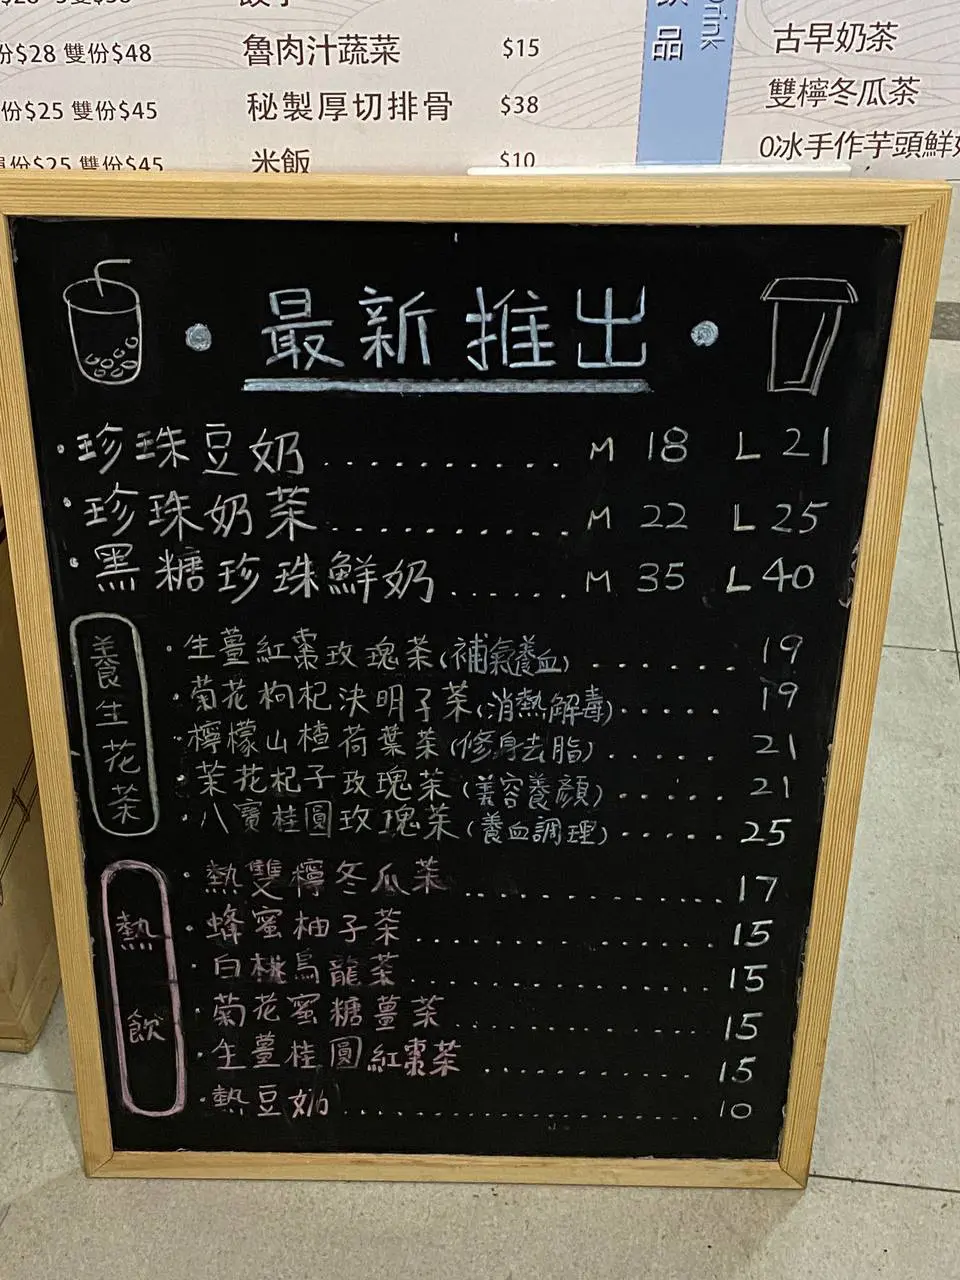 份$28 雙份$48
魯肉汁蔬菜 $15
古早奶茶
份$25 雙份$45
秘製厚切排骨 $38
雙檸冬瓜茶
份$25 雙份$45
米飯 $10
0冰手作芋頭鮮
品
Drink
最新推出
·珍珠豆奶.......... M 18 L 21
·珍珠奶茶.......... M 22 L 25
·黑糖珍珠鮮奶...... M 35 L 40
養生花茶
·生薑紅棗玫瑰茶(補氣養血)....... 19
·菊花枸杞決明子茶(消熱解毒)..... 19
·檸檬山楂荷葉茶(修身去脂)..... 21
·茉花杞子玫瑰茶(美容養顏)..... 21
·八寶桂圓玫瑰茶(養血調理)..... 25
熱飲
·熱雙檸冬瓜茶............ 17
·蜂蜜柚子茶............... 15
·白桃烏龍茶............... 15
·菊花蜜糖薑茶............. 15
·生薑桂圓紅棗茶........... 15
·熱豆奶................... 10